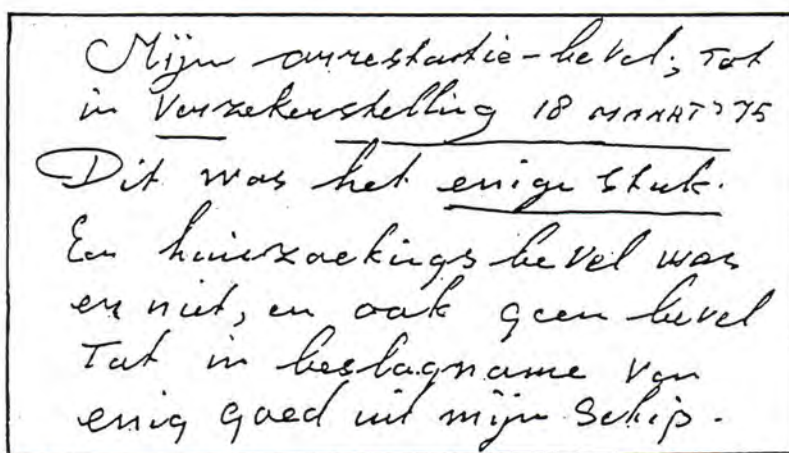 Mijn arrestatie-bevel; Tot
in Verzekerstelling 18 MAART '75
Dit was het enige stuk.
Een huiszoekings bevel was
er niet, en ook geen bevel
Tot in beslagname van
enig goed uit mijn schip.